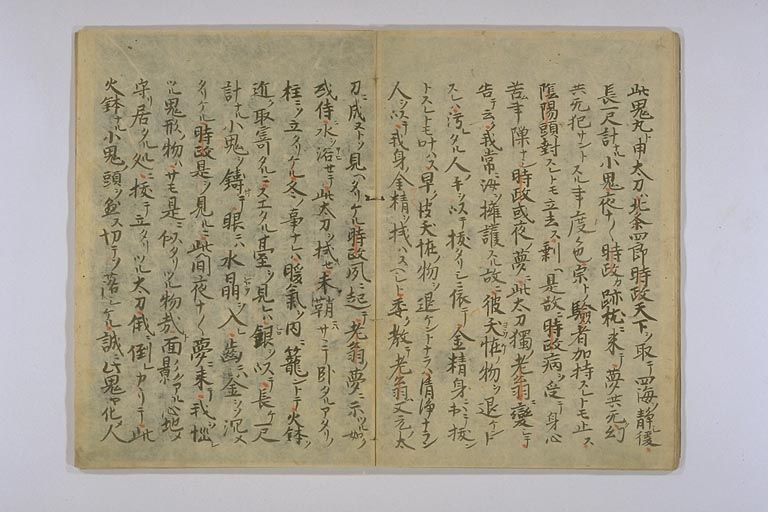 此鬼丸ト申太刀ハ北条四郎時政天下ヲ取テ四海ヲ静シ後
長一尺計ナル小鬼夜ナ〱時政カ跡枕ニ来テ夢共ナク幻
共ナク犯サントスル事度々也祟ト驗者加持スレトモ止ス
陰陽頭對スレトモ立去ス剰ヘ是故ニ時政病ヲ受テ身心
苦事隙ナシ時政或夜ノ夢ニ此太刀獨ノ老翁ニ變シテ
告テ云ク我常ニ海ヲ擁護スル故ニ彼夭恠ノ物ヲ退ケント
スレハ汚レタル人ノ手ヲ以テ抜タリシニ依テ金精身ヨリ出テ抜ン
トスレトモ叶ハス早ク彼夭恠ノ物ヲ退ケントナラハ清浄ナラン
人ヲ以テ我身ノ金精ヲ拭ハスヘシト委ク教テ老翁ハ又元ノ太
刀ニ成ヌトソ見ヘタリケル時政夙ニ起テ老翁ノ夢ニ示ツル如ク
或侍ニ水ヲ浴セテ此太刀ヲ拭セ未鞘ニサヽテ臥タルアタリノ
柱ニソ立タリケル冬ノ事ナレハ暖氣ヲ内ニ籠ントテ火鉢ヲ
近ク取寄タルニスエタル臺ヲ見レハ銀ヲ以テ長一尺
計ナル小鬼ヲ鑄テ眼ニハ水晶ヲ入レ齒ニハ金ヲソ沉メ
タリケル時政是ヲ見ルニ此間夜ナ〱夢ニ来テ我ヲ悩シ
ツル鬼形ノ物ハサモ是ニ似タリツル物哉ト面影アル心地シテ
守リ居タル処ニ抜テ立タリツル太刀俄ニ倒レカヽリテ此
火鉢ナル小鬼ノ頭ヲ盆ス切テソ落シケル誠ニ此鬼ヤ化シテ人ヲ